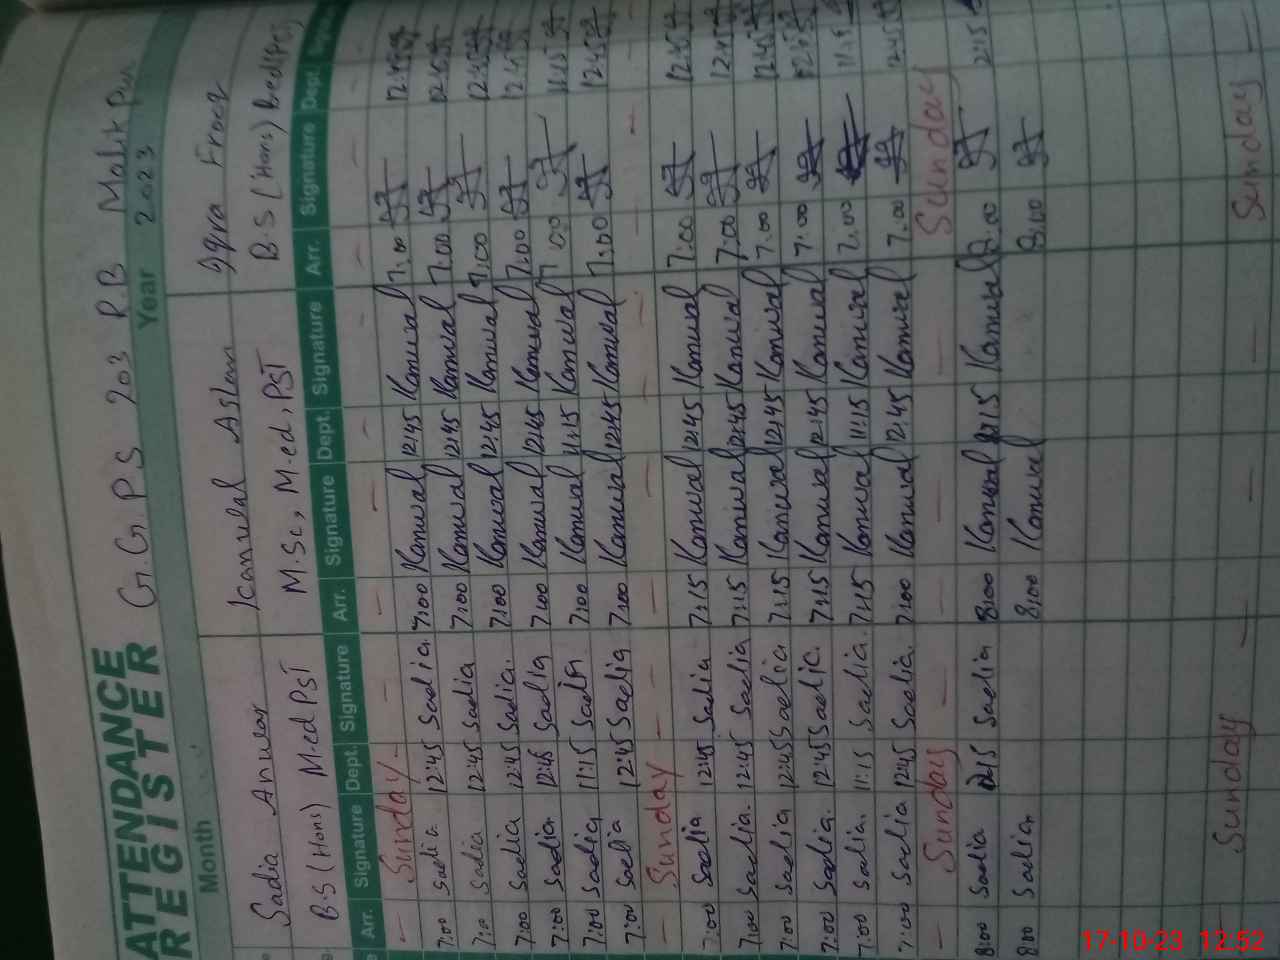 ATTENDANCE REGISTER G.G PS 203 RB Malik Pur
Month Year 2023
Sadia Anwar Kanwal Aslam Iqra Froog
B.S (Hons) M.ed PST M.Sc, M.ed, PST B.S (Hons) B.ed (PST)
Arr. Signature Dept. Signature Arr. Signature Dept. Signature Arr. Signature Dept.
— Sunday — — — — — —
7:00 Sadia 12:45 Sadia 7:00 Kanwal 12:45 Kanwal 7:00 12:45
7:00 Sadia 12:45 Sadia 7:00 Kanwal 12:45 Kanwal 7:00 12:45
7:00 Sadia 12:45 Sadia 7:00 Kanwal 12:45 Kanwal 7:00 12:45
7:00 Sadia 12:45 Sadia 7:00 Kanwal 12:45 Kanwal 7:00 12:45
7:00 Sadia 11:15 Sadia 7:00 Kanwal 11:15 Kanwal 7:00 11:15
7:00 Sadia 12:45 Sadia 7:00 Kanwal 12:45 Kanwal 7:00 12:45
— Sunday — — — — — —
7:00 Sadia 12:45 Sadia 7:15 Kanwal 12:45 Kanwal 7:00 12:45
7:00 Sadia. 12:45 Sadia 7:15 Kanwal 12:45 Kanwal 7:00 12:45
7:00 Sadia 12:45 Sadia 7:15 Kanwal 12:45 Kanwal 7.00 12:45
7:00 Sadia. 12:45 Sadia. 7:15 Kanwal 12:45 Kanwal 7:00 12:45
7:00 Sadia. 11:15 Sadia. 7:15 Kanwal 11:15 Kanwal 7.00 11:15
7:00 Sadia 12:45 Sadia. 7:00 Kanwal 12:45 Kanwal 7.00 12:45
— Sunday — — — Sunday
8:00 Sadia 12:15 Sadia 8:00 Kanwal 12:15 Kanwal 8:00 12:15
8:00 Sadia. 8:00 Kanwal 8:00
— Sunday — — — Sunday —
17-10-23 12:52